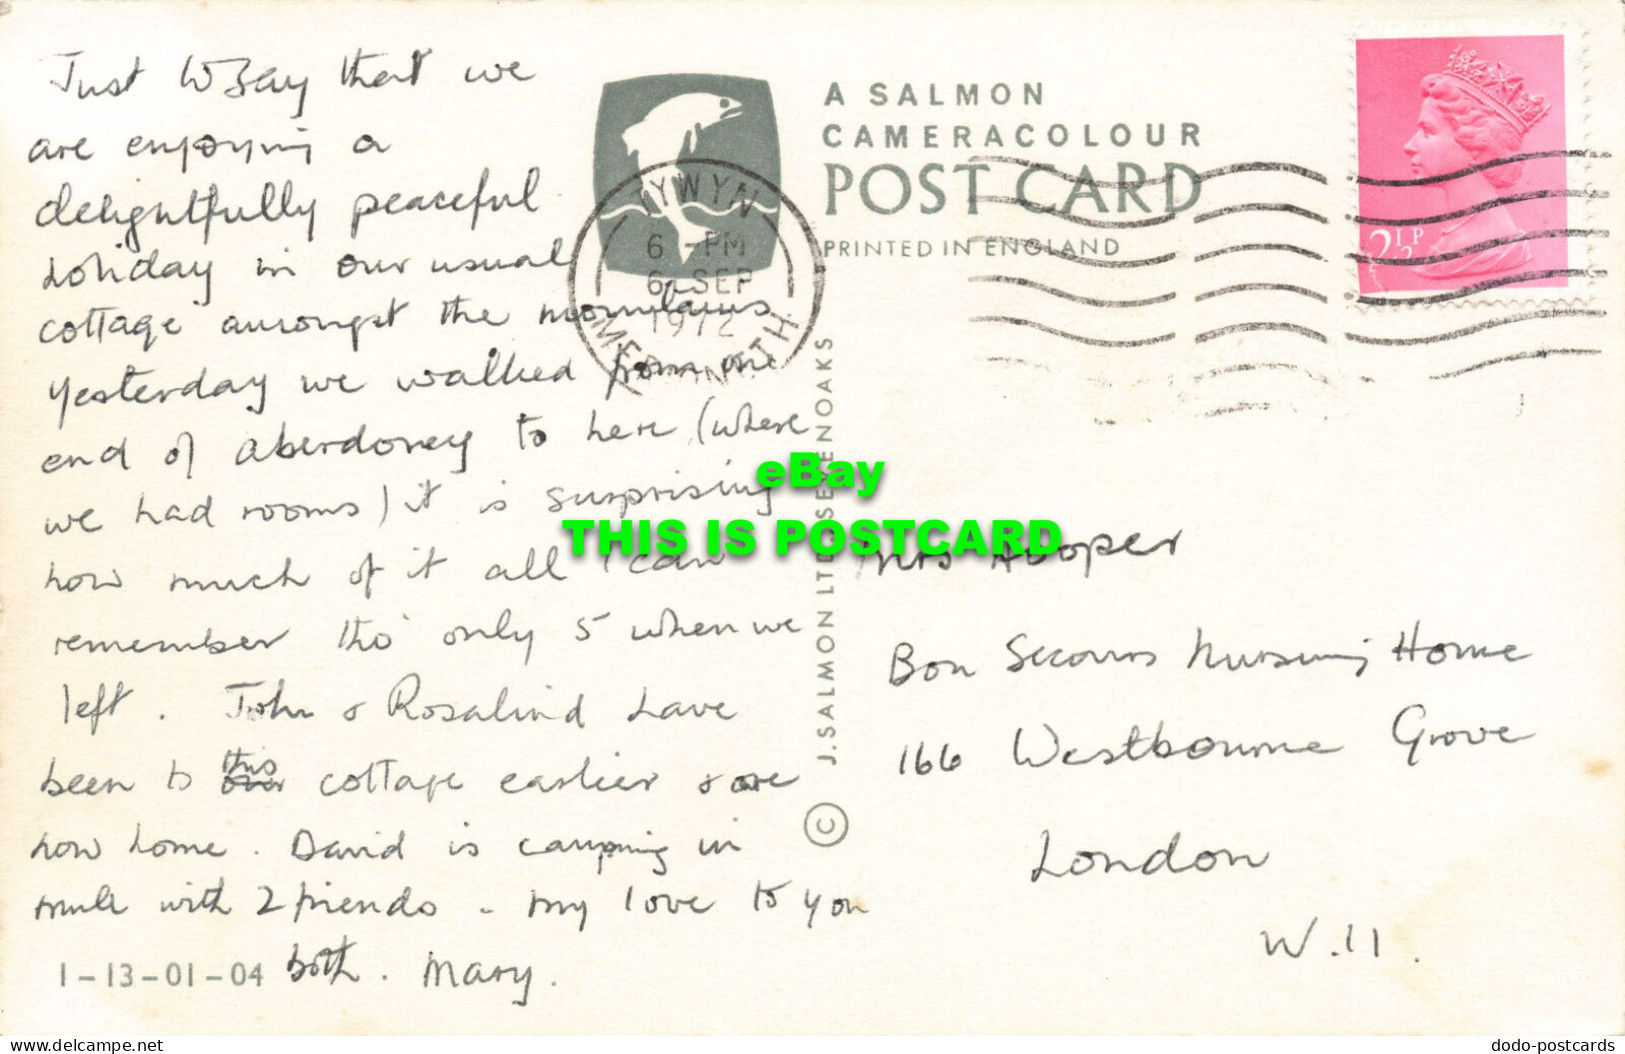 Just to say that we
are enjoying a
delightfully peaceful
holiday in our usual
cottage amongst the mountains
yesterday we walked from one
end of aberdovey to here (where
we had rooms) it is surprising
how much of it all I can
remember tho' only 5 when we
left. John & Rosalind have
been to this cottage earlier & are
now home. David is camping in
mull with 2 friends - my love to you
both. Mary.
1-13-01-04
A SALMON
CAMERACOLOUR
POST CARD
PRINTED IN ENGLAND
TYWYN
6 -PM
6 SEP
1972
MERIONETH
2½P
© J.SALMON LTD., SEVENOAKS
eBay
THIS IS POSTCARD
Mrs Hooper
Bon Secours Nursing Home
166 Westbourne Grove
London
W.11.
www.delcampe.net
dodo-postcards